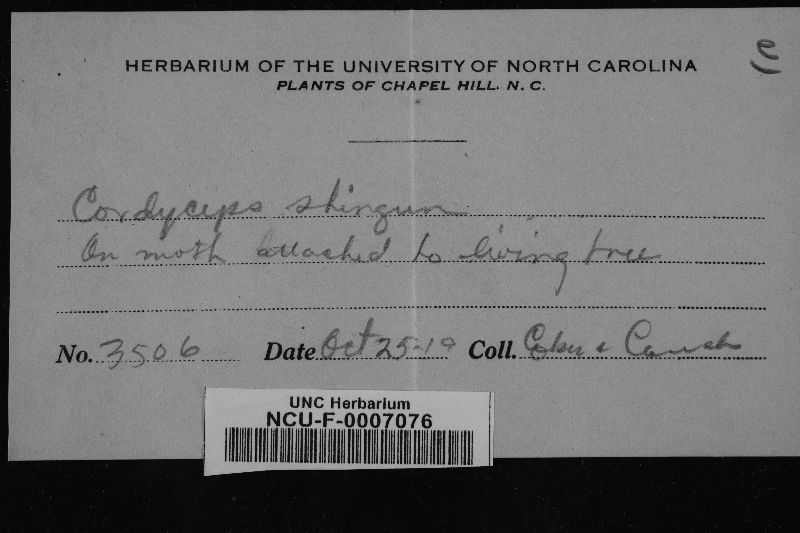 HERBARIUM OF THE UNIVERSITY OF NORTH CAROLINA
PLANTS OF CHAPEL HILL. N. C.
Cordyceps
On moth attached to living tree
No. 3506 Date Oct 25-19 Coll. Coker & Couch
UNC Herbarium
NCU-F-0007076